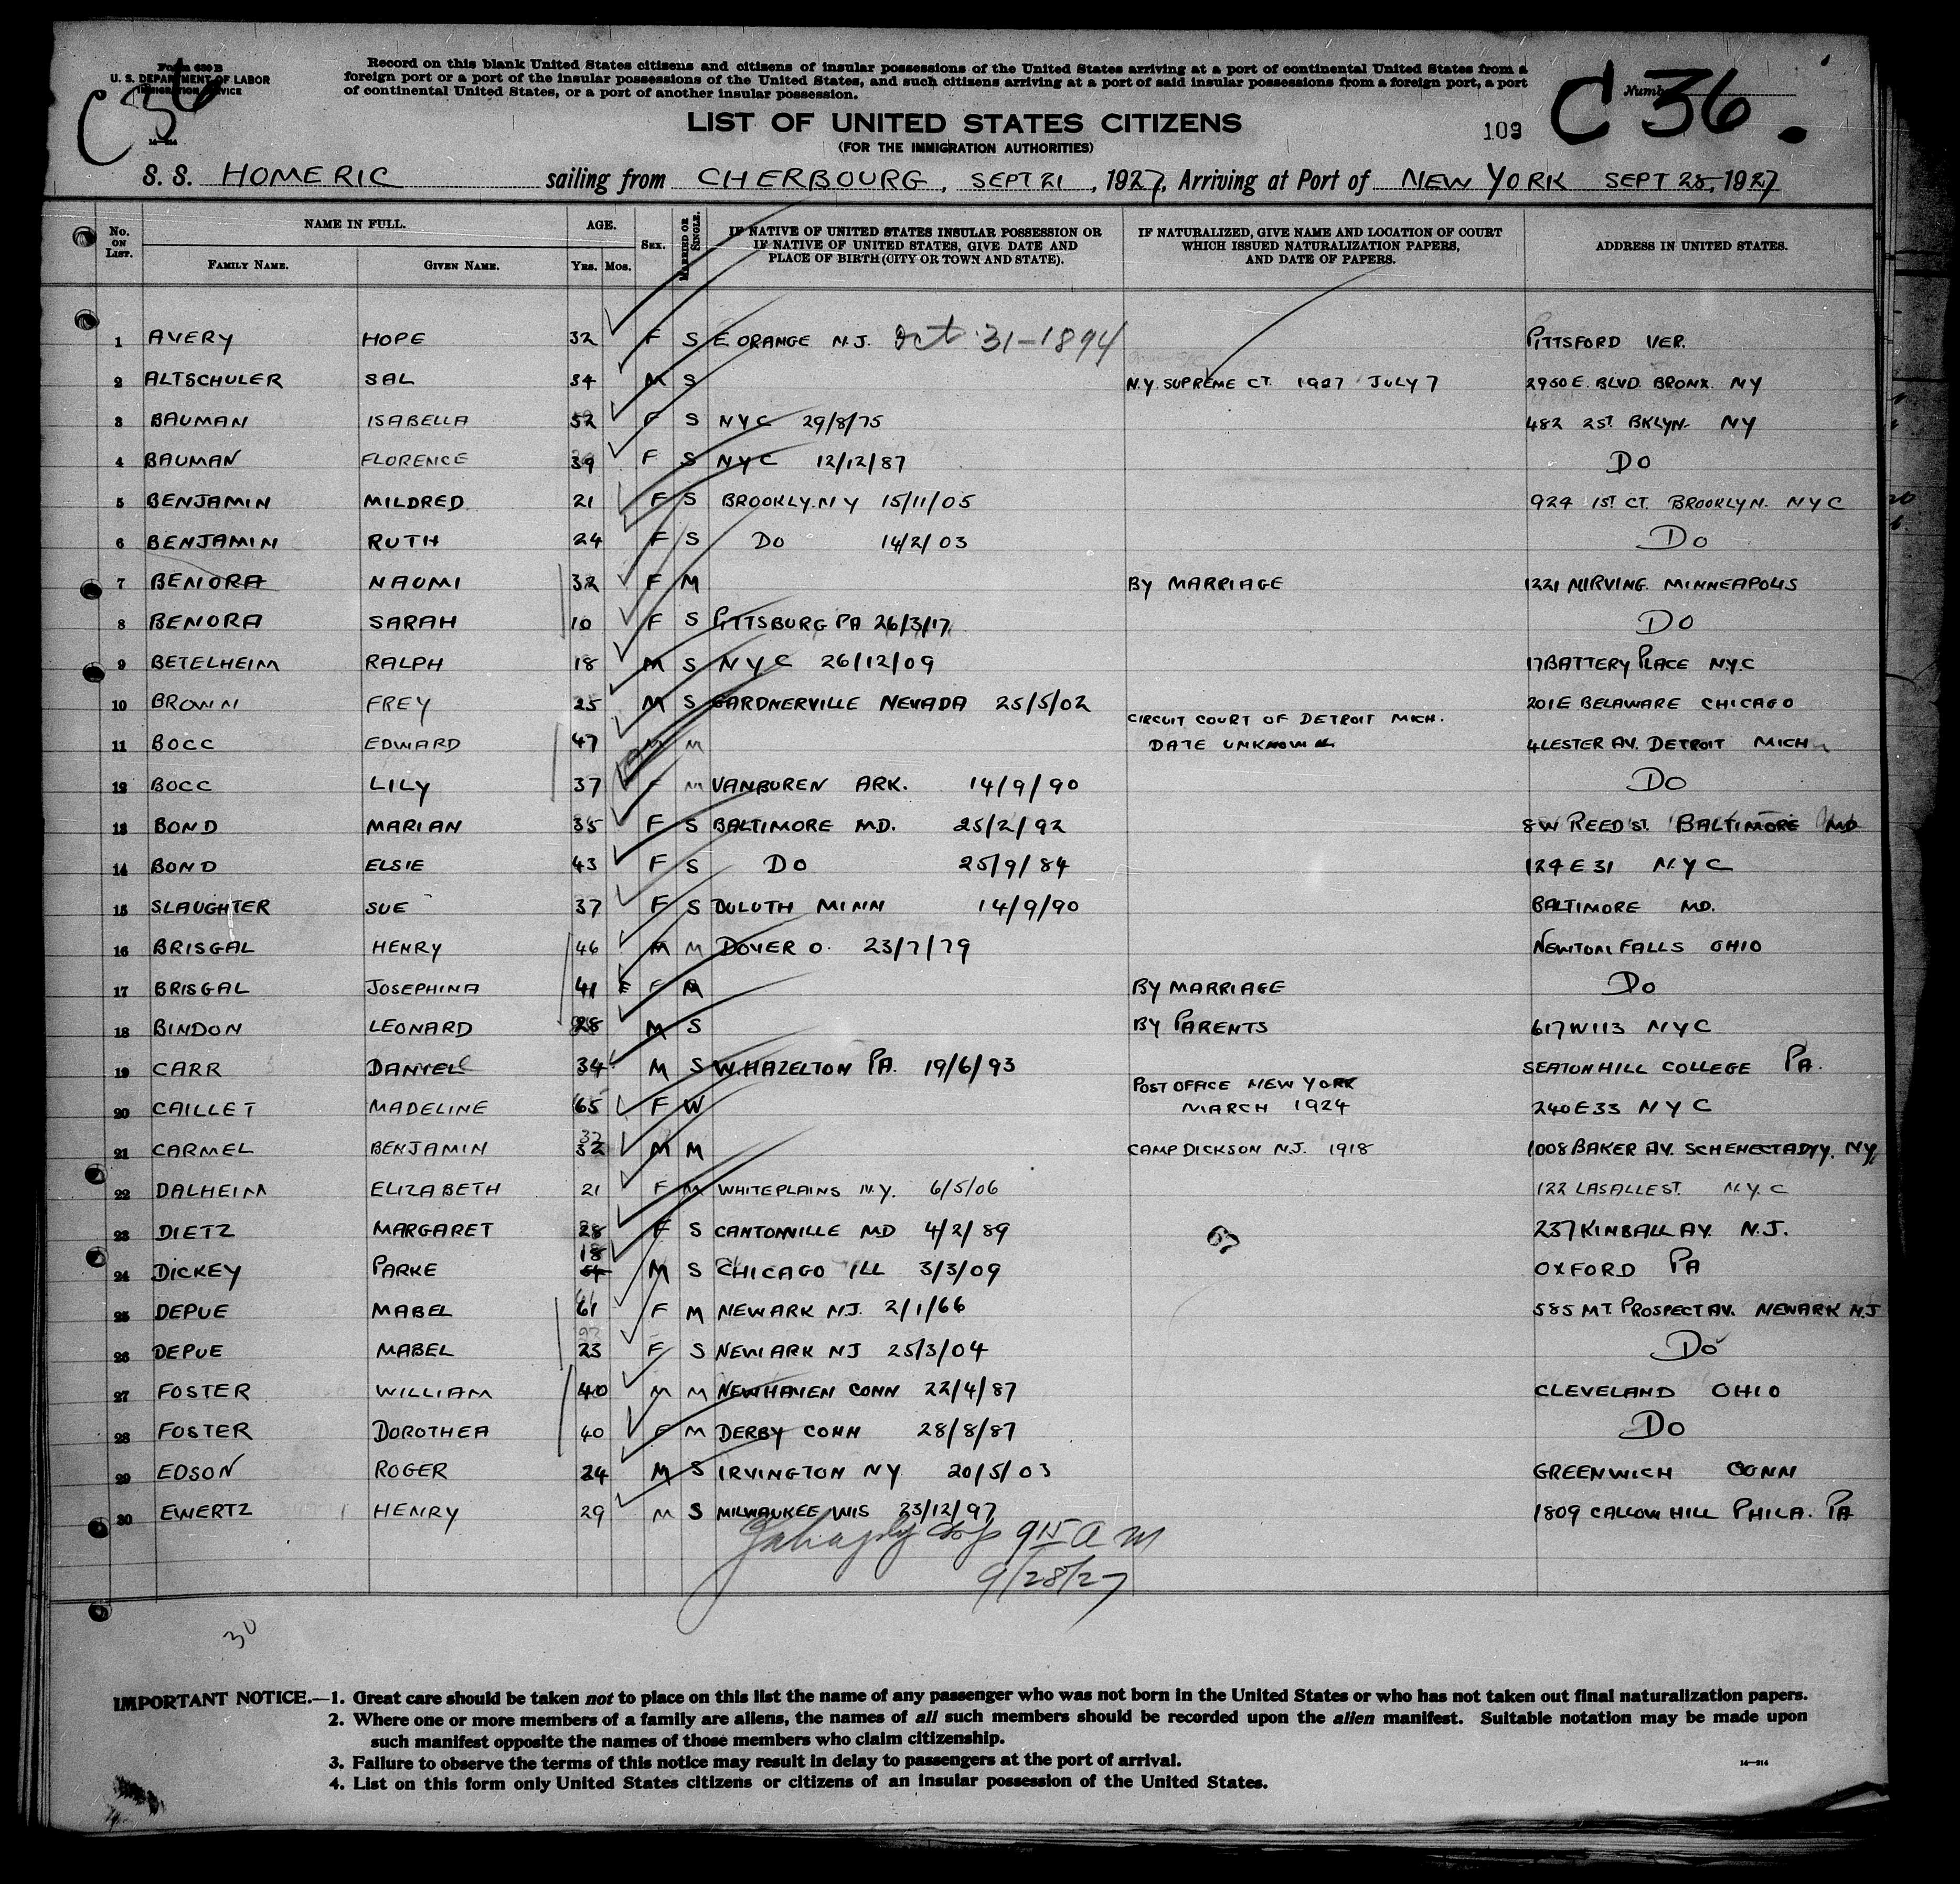 Form 630 B
U. S. DEPARTMENT OF LABOR
IMMIGRATION SERVICE
C 36
14—214
Record on this blank United States citizens and citizens of insular possessions of the United States arriving at a port of continental United States from a
foreign port or a port of the insular possessions of the United States, and such citizens arriving at a port of said insular possessions from a foreign port, a port
of continental United States, or a port of another insular possession.
LIST OF UNITED STATES CITIZENS
(FOR THE IMMIGRATION AUTHORITIES)
109
Number
C 36.
S. S. HOMERIC sailing from CHERBOURG, SEPT 21, 1927, Arriving at Port of NEW YORK SEPT 28, 1927
No. ON LIST. NAME IN FULL. FAMILY NAME. GIVEN NAME. AGE. YRS. MOS. SEX. MARRIED OR SINGLE. IF NATIVE OF UNITED STATES INSULAR POSSESSION OR IF NATIVE OF UNITED STATES, GIVE DATE AND PLACE OF BIRTH (CITY OR TOWN AND STATE). IF NATURALIZED, GIVE NAME AND LOCATION OF COURT WHICH ISSUED NATURALIZATION PAPERS, AND DATE OF PAPERS. ADDRESS IN UNITED STATES.
1 AVERY HOPE 32 F S E ORANGE N.J. Oct 31-1894 PITTSFORD VER.
2 ALTSCHULER SAL 34 M S N.Y. SUPREME CT. 1927 JULY 7 2950 E. BLVD. BRONX. NY
3 BAUMAN ISABELLA 52 F S NYC 29/8/75 482 2ST. BKLYN. NY
4 BAUMAN FLORENCE 39 F S NYC 12/12/87 DO
5 BENJAMIN MILDRED 21 F S BROOKLY.NY 15/11/05 924 1ST. CT. BROOKLYN. NYC
6 BENJAMIN RUTH 24 F S DO 14/2/03 DO
7 BENORA NAOMI 32 F M BY MARRIAGE 1221 NIRVING. MINNEAPOLIS
8 BENORA SARAH 10 F S PITTSBURG PA 26/3/17 DO
9 BETELHEIM RALPH 18 M S NYC 26/12/09 17 BATTERY PLACE NYC
10 BROWN FREY 25 M S GARDNERVILLE NEVADA 25/5/02 201E BELAWARE CHICAGO
11 BOCC EDWARD 47 M M CIRCUIT COURT OF DETROIT MICH. DATE UNKNOWN 4 LESTER AV. DETROIT MICH
12 BOCC LILY 37 F M VANBUREN ARK. 14/9/90 DO
13 BOND MARIAN 35 F S BALTIMORE MD. 25/2/92 8W REED ST. BALTIMORE MD
14 BOND ELSIE 43 F S DO 25/9/84 129 E 31 NYC
15 SLAUGHTER SUE 37 F S DULUTH MINN 14/9/90 BALTIMORE MD.
16 BRISGAL HENRY 46 M M DOVER O. 23/7/79 NEWTON FALLS OHIO
17 BRISGAL JOSEPHINA 41 F F M BY MARRIAGE DO
18 BINDON LEONARD 28 M S BY PARENTS 617 W 113 NYC
19 CARR DANIEL 34 M S W. HAZELTON PA. 19/6/93 SEATON HILL COLLEGE PA.
20 CAILLET MADELINE 65 F W POST OFFICE NEW YORK MARCH 1924 240 E 33 NYC
21 CARMEL BENJAMIN 32 32 M M CAMP DICKSON N.J. 1918 1008 BAKER AV. SCHENECTADYY. NY
22 DALHEIM ELIZABETH 21 F M WHITEPLAINS N.Y. 6/5/06 122 LASALLE ST. N.Y.C
23 DIETZ MARGARET 28 F S CANTONVILLE MD 4/2/89 237 KINBALL AV. N.J.
24 DICKEY PARKE 18 M S CHICAGO ILL 3/3/09 OXFORD PA
25 DEPUE MABEL 61 F M NEWARK N.J. 2/1/66 585 MT. PROSPECT AV. NEWARK N.J
26 DEPUE MABEL 23 F S NEWARK NJ 25/3/04 DO
27 FOSTER WILLIAM 40 M M NEWHAVEN CONN 22/4/87 CLEVELAND OHIO
28 FOSTER DOROTHEA 40 F M DERBY CONN 28/8/87 DO
29 EDSON ROGER 24 M S IRVINGTON NY 20/5/03 GREENWICH CONN
30 EWERTZ HENRY 29 M S MILWAUKEE WIS 23/12/97 1809 CALLOW HILL PHILA. PA
915 a m
9/28/27
30
IMPORTANT NOTICE.—1. Great care should be taken not to place on this list the name of any passenger who was not born in the United States or who has not taken out final naturalization papers.
2. Where one or more members of a family are aliens, the names of all such members should be recorded upon the alien manifest. Suitable notation may be made upon
such manifest opposite the names of those members who claim citizenship.
3. Failure to observe the terms of this notice may result in delay to passengers at the port of arrival.
4. List on this form only United States citizens or citizens of an insular possession of the United States.
14—214